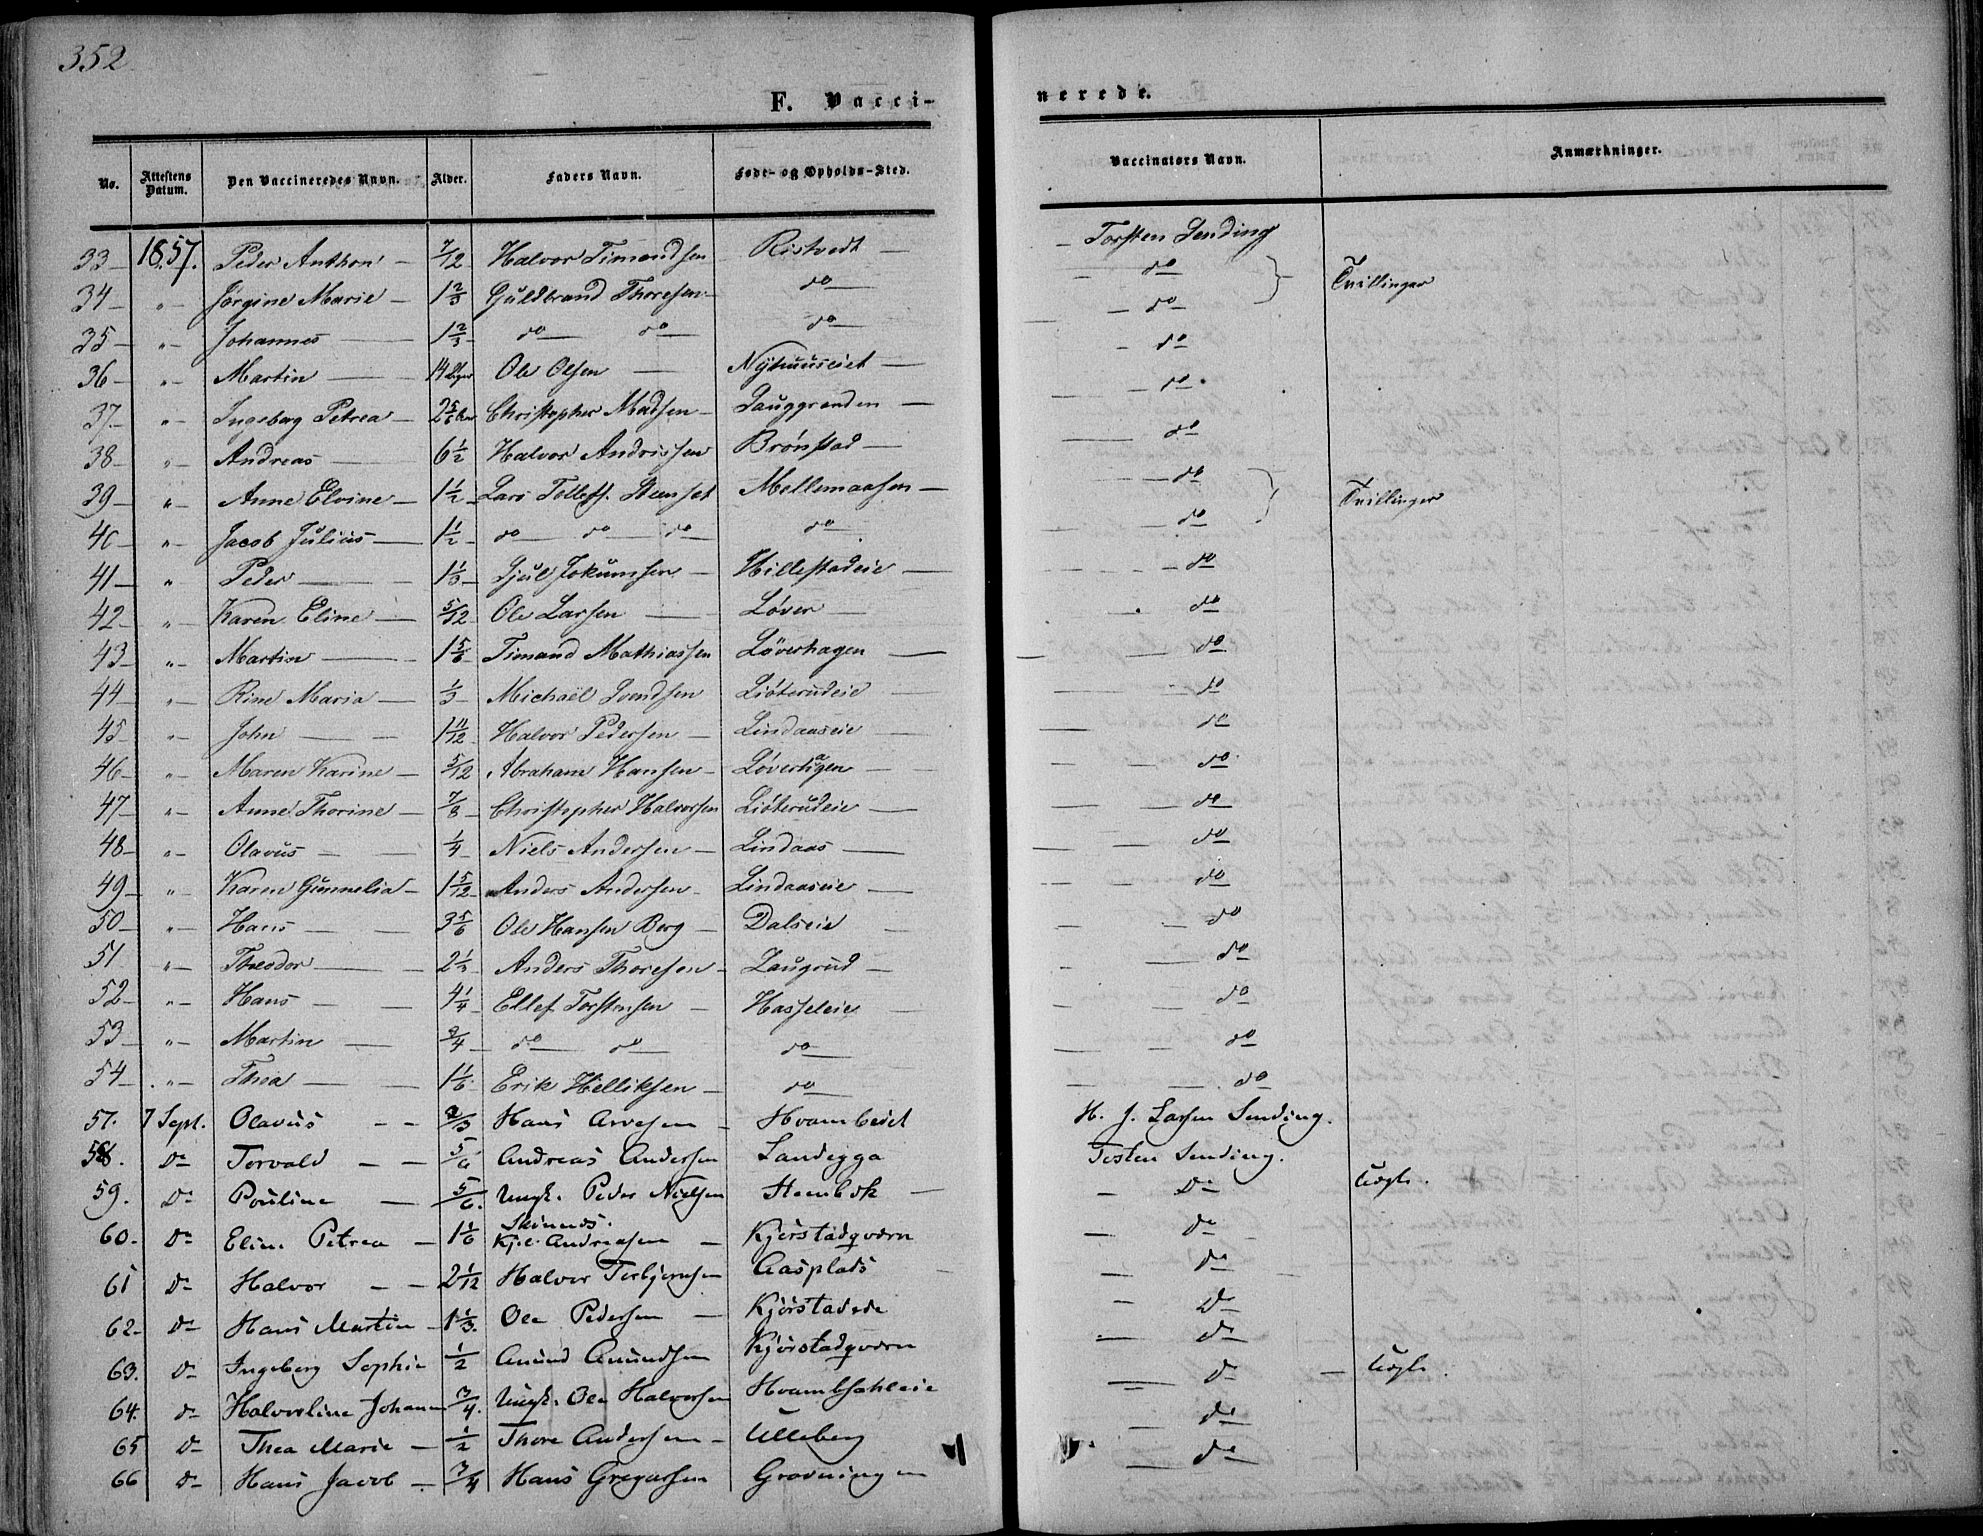 352
F. Vacci-
nerede.
No. Attestens Datum. Den Vaccineredes Navn. Alder. Faders Navn. Føde- og Opholds-Sted. Vaccinatørs Navn. Anmærkninger.
33 1857. Peder Anthon 7/12 Halvor Timandsen Ristvedt Torsten Sending
34 " Jørgine Marie 1 2/3 Guldbrand Thoresen do do Tvillinger
35 " Johannes 1 2/3 do do do do
36 " Martin 14 Ole Olsen Nyhuuseiet do
37 " Ingeborg Petrea 2 5/6 Christopher Madsen Hauggranden do
38 " Andreas 6 1/2 Halvor Andrissen Brønstad do
39 " Anne Elvine 1 1/2 Lars Tollefs. Mellemaasen do Tvillinger
40 " Jacob Julius 1 1/2 do do do do do
41 " Peder 1 1/3 Gjul Jokumsen Hillestadeie do
42 " Karen Eline 5/12 Ole Larsen Løver do
43 " Martin 1 5/6 Timand Mathiassen Løverhagen do
44 " Rine Maria 1/3 Michaël Svendsen Liøterudeie do
45 " John 1 11/12 Halvor Pedersen Lindaaseie do
46 " Maren Karine 5/12 Abraham Hansen Løverhagen do
47 " Anne Thorine 7/8 Christopher Halvorsen Liøterudeie do
48 " Olavus 1/4 Niels Andersen Lindaas do
49 " Karen Gunnelia 1 5/12 Anders Andersen Lindaaseie do
50 " Hans 3 5/6 Ole Hansen Berg Dalseie do
51 " Theodor 2 1/2 Anders Thoresen Haugrud do
52 " Hans 4 1/4 Ellef Torstensen Hasseleie do
53 " Martin 3/4 do do do do
54 " Thea 1 1/6 Erik Helliksen do do
57. 7 Sept. Olavus 2/3 Hans Arvesen Hvambeiet H. J. Larsen Sending.
58. Do Torvald 5/6 Andreas Andersen Landegga Tosten Sending.
59. Do Pouline 5/6. Ungk. Peder Nielsen Stenbek Do Uægte.
60. Do Eline Petrea 1 1/6 Kjel Andreasen Kjørstadqværn do
61 Do Halvor 2 1/12 Halvor Torbjørnsen Aasplads do
62. Do Hans Martin 1 1/3. Ole Pedersen Kjørstadeie Do
63. Do Ingeborg Sophie 1/2 Amund Amundsen Kjørstadqværn do
64. do Halvorline Johanne 3/4. Ungk. Ole Halvorsen Do Uægte.
65 do Thea Marie 1/2 Thore Andersen Ulleberg do
66 Do Hans Jacob 3/4 Hans Gregarsen Gravningen do